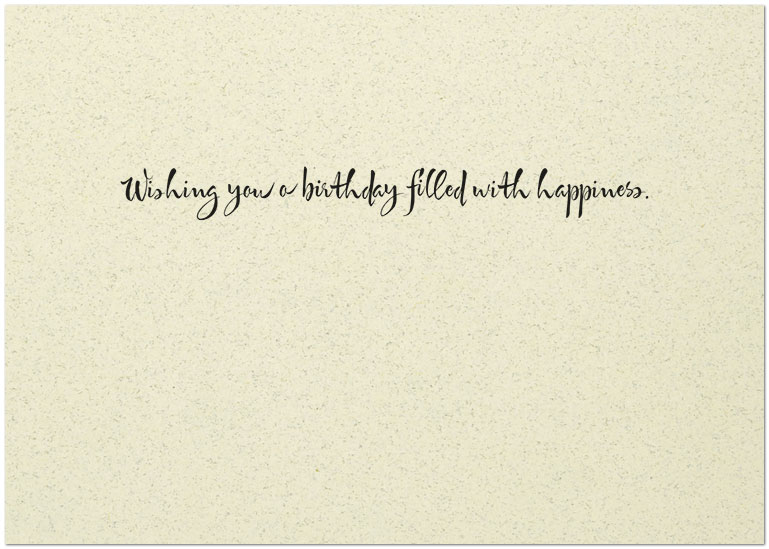 Wishing you a birthday filled with happiness.